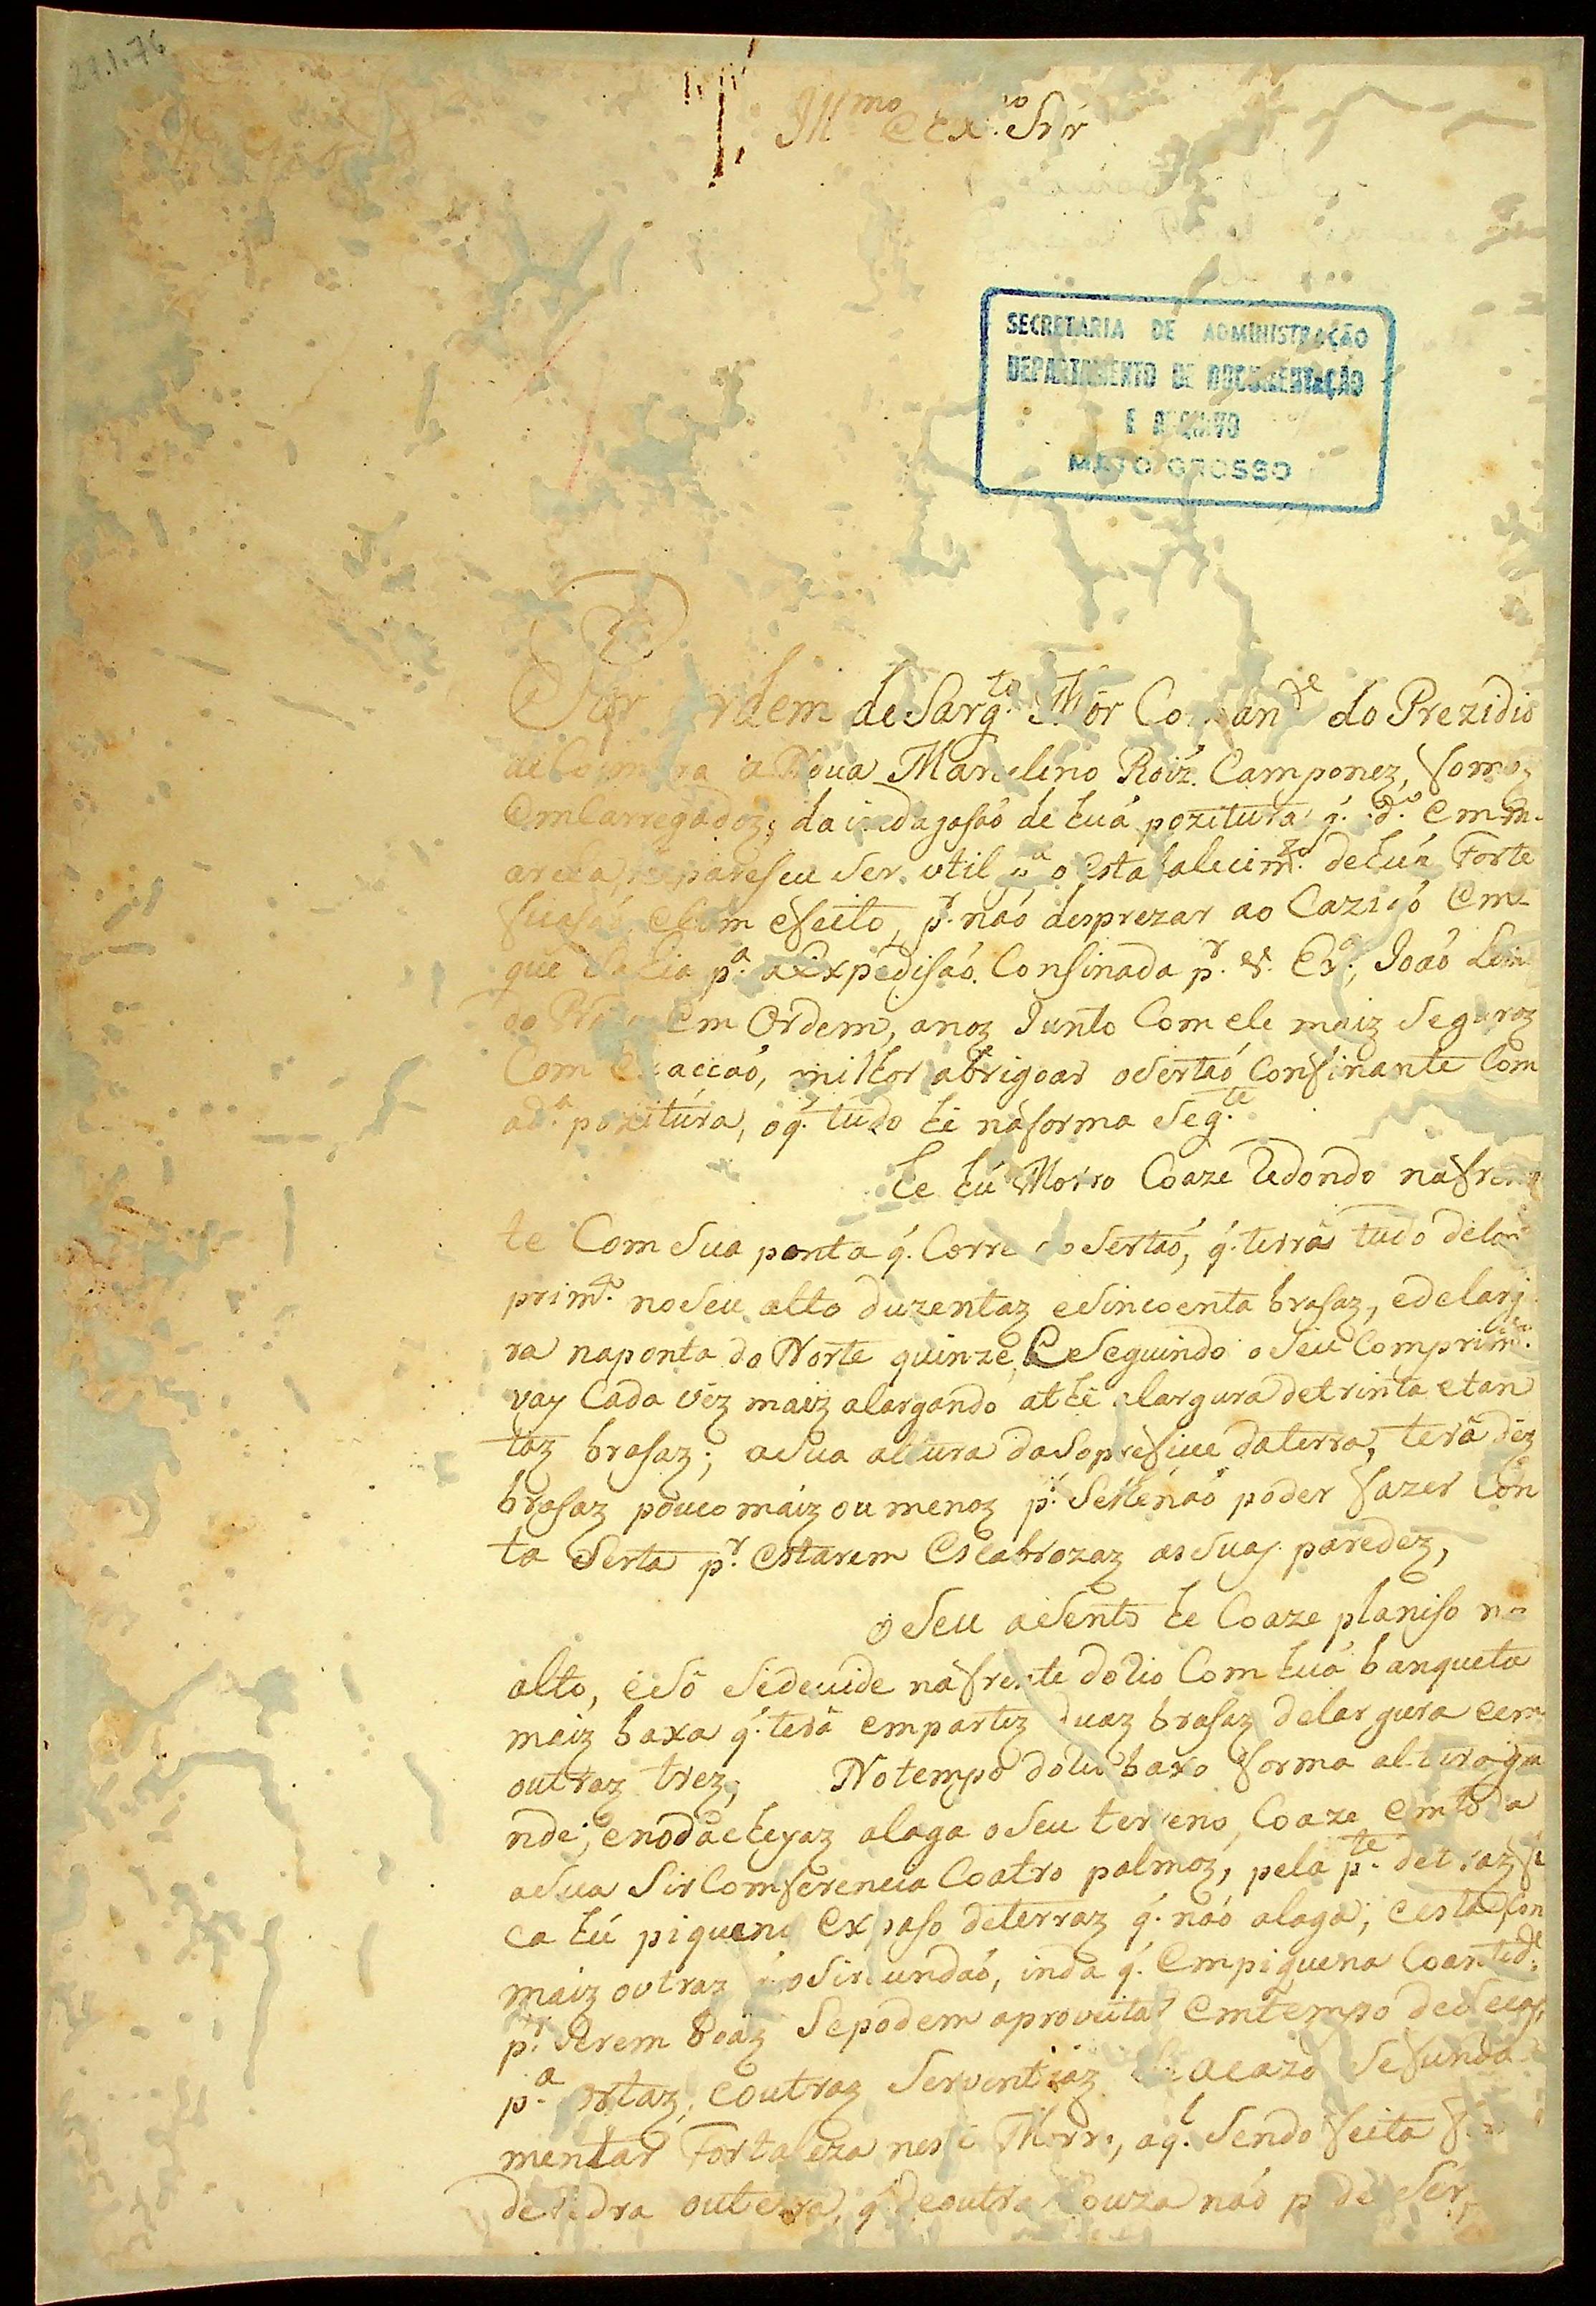 27.1.76
Ill.mo e Ex.mo Snr
SECRETARIA DE ADMINISTRAÇÃO
DEPARTAMENTO DE DOCUMENTAÇÃO
E ARQUIVO
MATO GROSSO
Por ordem de Sarg.to Mór Coman.de do Prezidio
de Coimbra a Nova Marcelino Roiz. Camponez, fomoz
Emcarregadoz, da indagasaó de huá pozitura q.
pareseu ser util p.a o estabalecim.to de huá Forte
ficasaó, e com efeito, p.r naó desprezar ao Em
que p.a a Expedisaó. Consinada p.r V. Ex.a, Joaó
do Em Ordem, a noz Junto Com ele maiz Seguroz
Com exaccaó, milhor abrigoar o sertaó Confinante Com
a d.a pozitúra, o q. tudo he na forma Seg.te
he hú Morro Coaze Redondo na fren
te Com Sua ponta q. Corre ao Sertaó, q. terrá tudo de Com
prim.to no Seu alto duzentaz e Sincoenta brasaz, e de largu
ra na ponta do Norte quinze, E Seguindo o Seu Comprim.to
vay Cada vêz maiz alargando athé a largura de trinta e tan
taz brasaz; a Sua altura da Sopreficie da terra, terá dêz
brasaz pouco maiz ou menoz p.r Se lhe naó poder fazer Con
ta Serta p.r Estarem Escabrozaz as Suas paredez,
o Seu asento he Coaze planiso no
alto, e Só Se devide na frente do Rio Com huá banqueta
maiz baxa q. terá em partez duaz brasaz de largura e em
outraz trez, No tempo do Rio baxo forma
nde; e no da cheyaz alaga o Seu terreno, Coaze Em toda
a Sua SirComferencia Coatro palmoz, pela p.te detraz fi
ca hú piqueno Expaso de terraz q. naó alaga, e esta Com
maiz outraz q. o Sircundaó, inda q. Em piquena Coantid.e
p.r Serem boaz Se podem aproveitar Em tempo de Secas,
p.a ortaz, e outraz Serventiaz Se acazo Se funda
mentar Fortaleza neste Morro, a q.l Sendo feita
de Pedra ou terra, q. de outra Couza naó pode Ser,